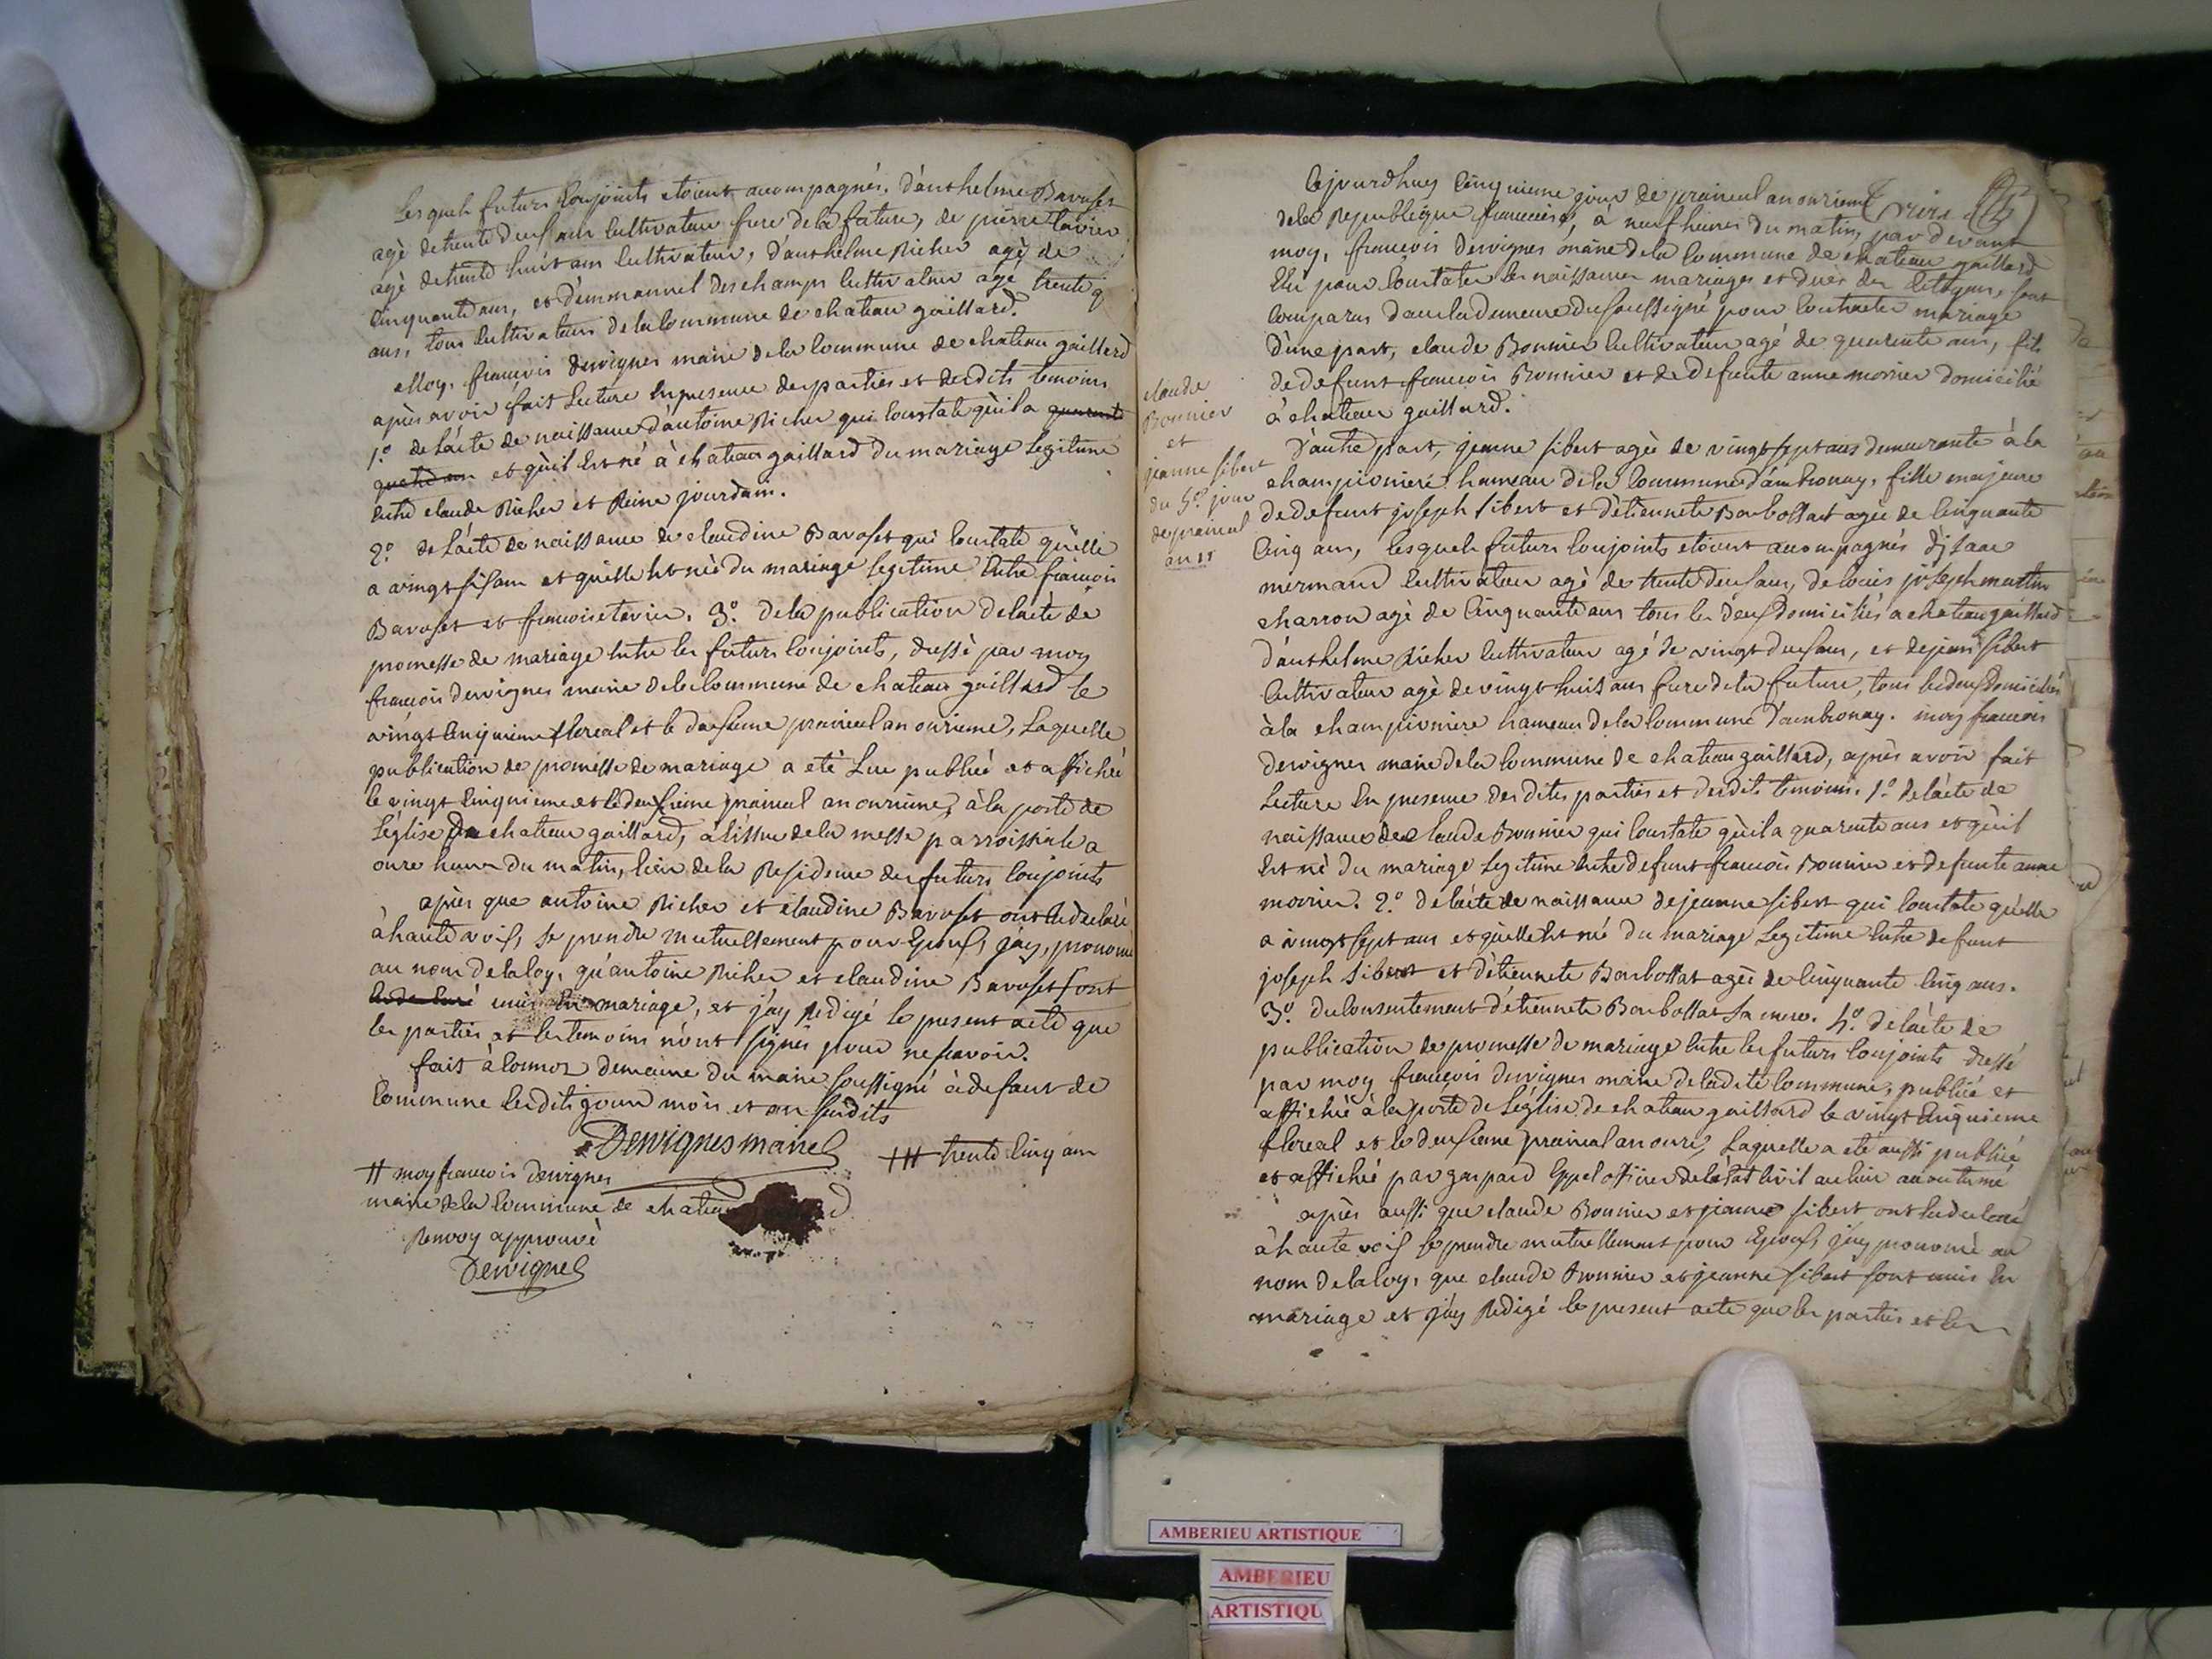 Les quels futurs conjoints etoient acompagnés, d'anthelme Baraset
agé de trente deux ans cultivateur frere de la future, de pierre tavier
agé de trente huit ans cultivateur, d'anthelme Richer agé de
cinquante ans, et d'emmanuel deschamps cultivateur agé trente
ans, tous cultivateurs de la commune de chateau gaillard.
Moy, francois dervignes maire de la commune de chateau gaillard
après avoir fait lecture en presence des parties et desdits temoins
1.º de l'acte de naissance d'antoine Richer qui constate qu'il a quarante
quatre ans et qu'il est né à chateau gaillard du mariage legitime
entre claude Richer et Reine jourdain.
2.º de l'acte de naissance de claudine Baraset qui constate qu'elle
a vingt six ans et quelle est née du mariage legitime entre francois
Baraset et francoise tavier. 3.º de la publication de l'acte de
promesse de mariage entre les futurs conjoints, dressé par moy
francois dervignes maire de la commune de chateau gaillard le
vingt cinquieme floreal et le deuxieme prairial an onzieme, Laquelle
publication de promesse de mariage a eté Lue publiée et affichée
le vingt cinquieme et le deuxieme prairial an onzieme, à la porte de
l'église de chateau gaillard, à l'issue de la messe parroissiale a
onze heures du matin, lieu de la Residence des futurs conjoints
après que antoine Richer et claudine Baraset ont eu declaré
à haute voix, se prendre mutuellement pour Epoux, j'ay, prononcé
au nom de la loy, qu'antoine Richer et claudine Baraset sont
unis en mariage, et j'ay Redigé le present acte que
les parties et les temoins n'ont signés pour ne scavoir.
fait à demeure du maire soussigné à defaut de
commune lesdits jour mois et an susdits
Dervignes maire
+++ trente cinq ans
++ moy francois dervignes
maire de la commune de chateau
Renvoy approuvé
Dervignes
Cejourdhuy cinquieme jour de prairial an onzieme
de la Republique francaise, à neuf heures du matin, par devant
moy, francois dervignes maire de la commune de chateau gaillard
Elu pour constater les naissances mariages et decès des citoyens, sont
comparus dans la demeure du soussigné pour contracter mariage
d'une part, claude Bonnier cultivateur agé de quarante ans, fils
de defunt francois Bonnier et de defunte anne morrier domicilié
à chateau gaillard.
claude
Bonnier
et
jeanne sibert
du 5.e jour
de prairial
an 11
D'autre part, jeanne sibert agée de vingt sept ans demeurante à la
championiere hameau de la commune d'ambronay, fille majeure
de defunt joseph sibert et d'etiennete Barbollat agée de cinquante
cinq ans, lesquels futurs conjoints etoient acompagnés d'isaac
mermand cultivateur agé de trente deux ans, de louis joseph martin
charron agé de cinquante ans tous les deux domiciliés a chateau gaillard
d'anthelme Richer cultivateur agé de vingt deux ans, et de jean sibert
cultivateur agé de vingt huit ans frere de la future, tous les deux domiciliés
à la championiere hameau de la commune d'ambronay. moy francois
dervignes maire de la commune de chateau gaillard, après avoir fait
Lecture en presence des dites parties et desdits temoins. 1.º de l'acte de
naissance de claude Bonnier qui constate qu'il a quarante ans et qu'il
est né du mariage legitime entre defunt francois Bonnier et defunte anne
morrier. 2.º de l'acte de naissance de jeanne sibert qui constate qu'elle
a vingt sept ans et qu'elle est née du mariage Legitime entre defunt
joseph sibert et d'etiennete Barbollat agée de cinquante cinq ans.
3.º du consentement d'etiennete Barbollat sa mere. 4.º de l'acte de
publication de promesse de mariage entre les futurs conjoints dressé
par moy francois dervignes maire de ladite commune, publiée et
affichée à la porte de l'église de chateau gaillard le vingt cinquieme
floreal et le deuxieme prairial an onze, Laquelle a eté aussi publiée
et affichée par gaspard officier de l'état civil au lieu accoutumé
après aussi que claude Bonnier et jeanne sibert ont eu declaré
à haute voix se prendre mutuellement pour Epoux, j'ay prononcé au
nom de la loy, que claude Bonnier et jeanne sibert sont unis en
mariage et j'ay Redigé le present acte que les parties et les
AMBERIEU ARTISTIQUE
AMBERIEU
ARTISTIQU